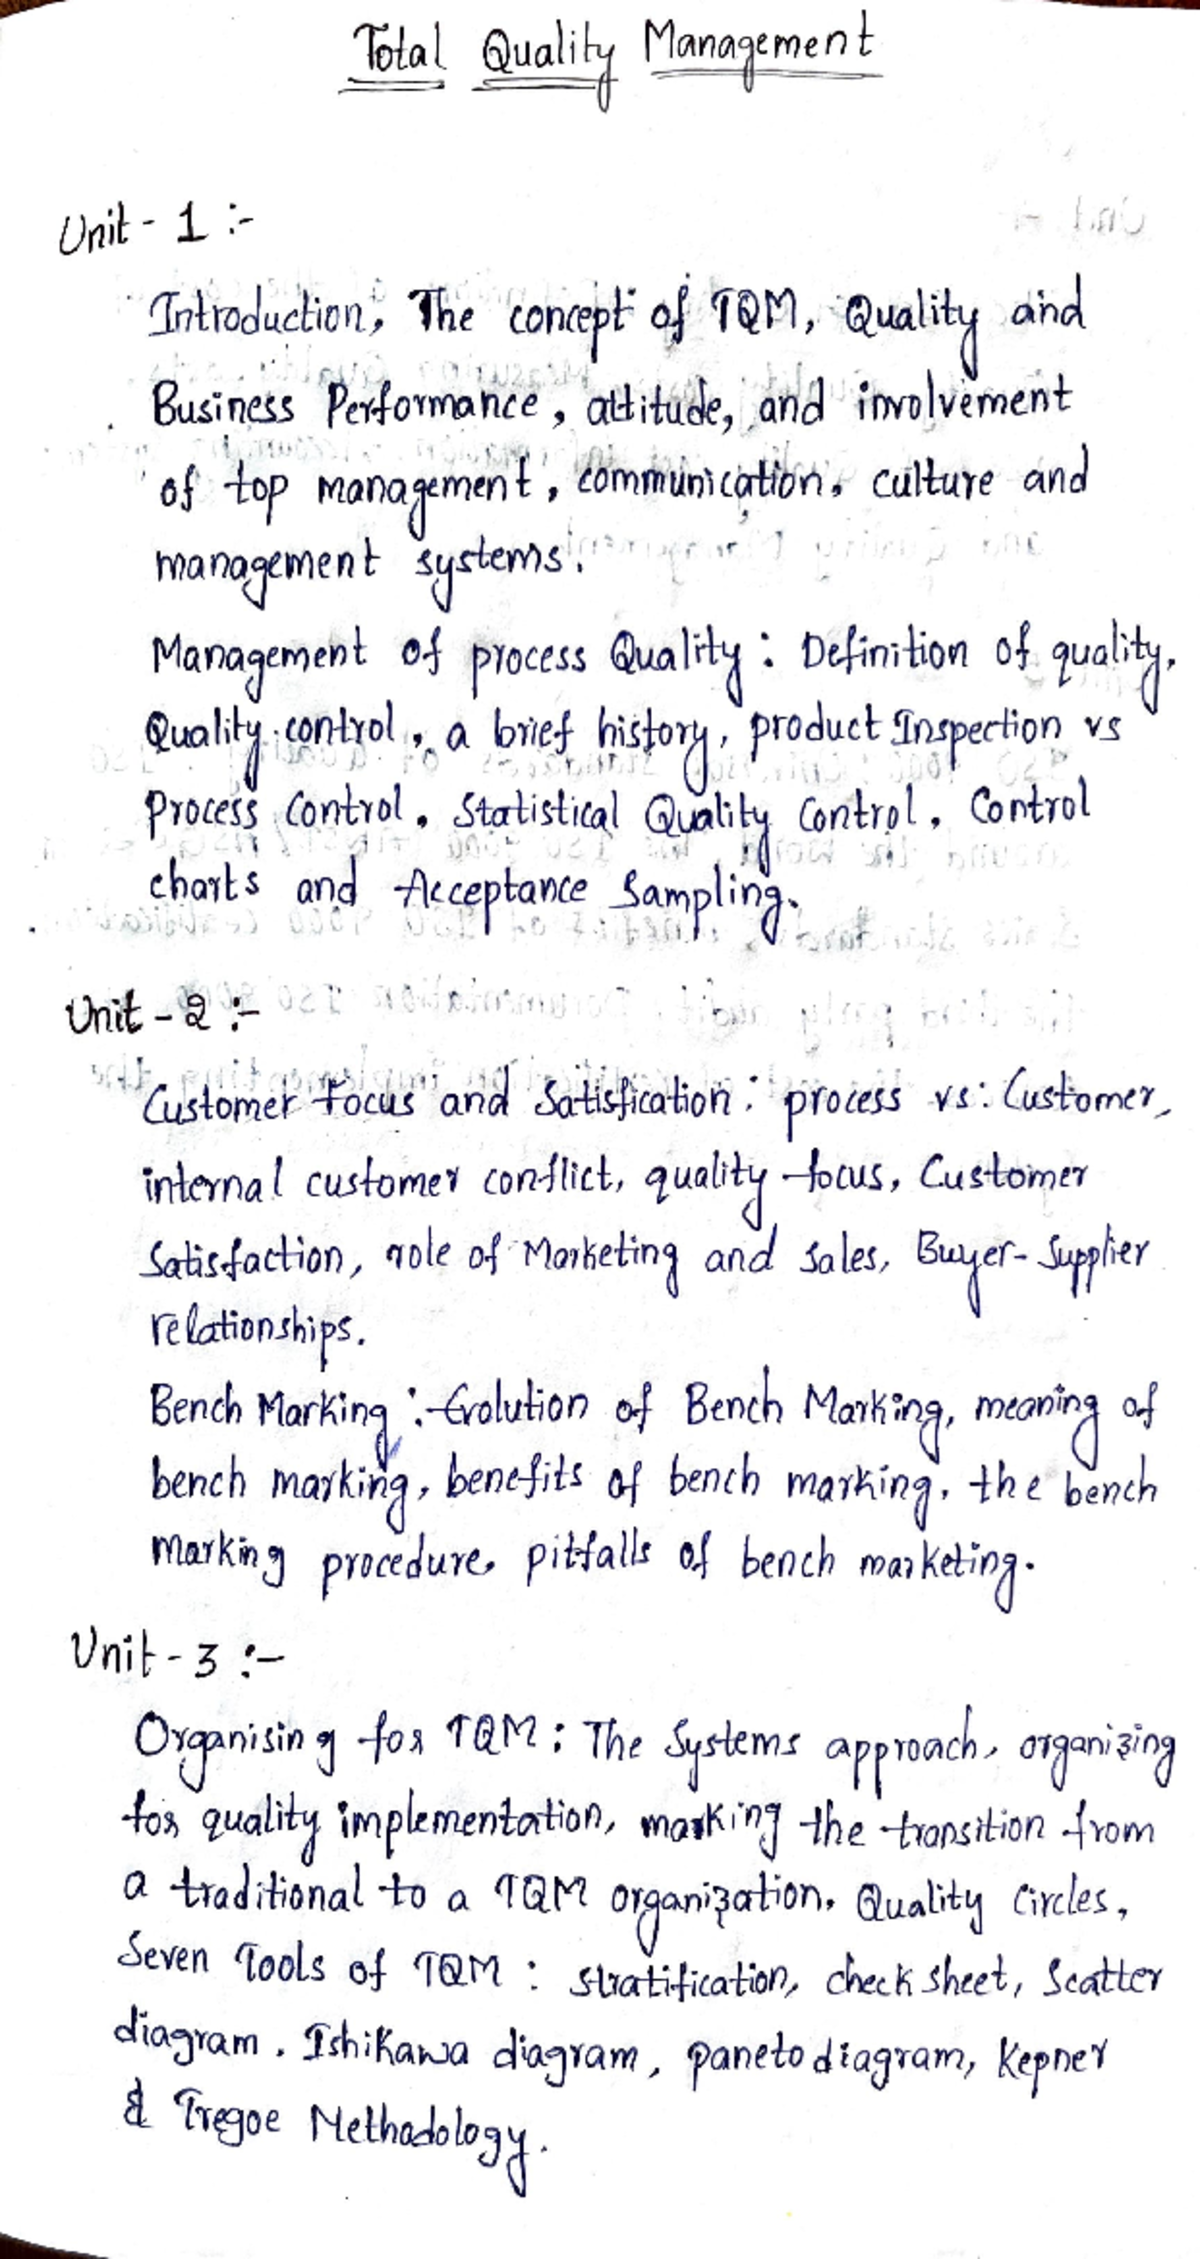 Total Quality Management
Unit - 1 :-
Introduction, The concept of TQM, Quality and
Business Performance, attitude, and involvement
of top management, communication, culture and
management systems.
Management of process Quality : Definition of quality,
Quality control, a brief history, product Inspection vs
Process Control, Statistical Quality Control, Control
charts and Acceptance Sampling.
Unit - 2 :-
Customer Focus and Satisfication : process vs. Customer,
internal customer conflict, quality focus, Customer
Satisfaction, role of Marketing and Sales, Buyer-Supplier
relationships.
Bench Marking :- Evolution of Bench Marking, meaning of
bench marking, benefits of bench marking, the bench
marking procedure, pitfalls of bench marketing.
Unit - 3 :-
Organising for TQM : The Systems approach, organizing
for quality implementation, marking the transition from
a traditional to a TQM organization, Quality Circles,
Seven Tools of TQM : Stratification, check sheet, Scatter
diagram, Ishikawa diagram, paneto diagram, Kepner
& Tregoe Methodology.